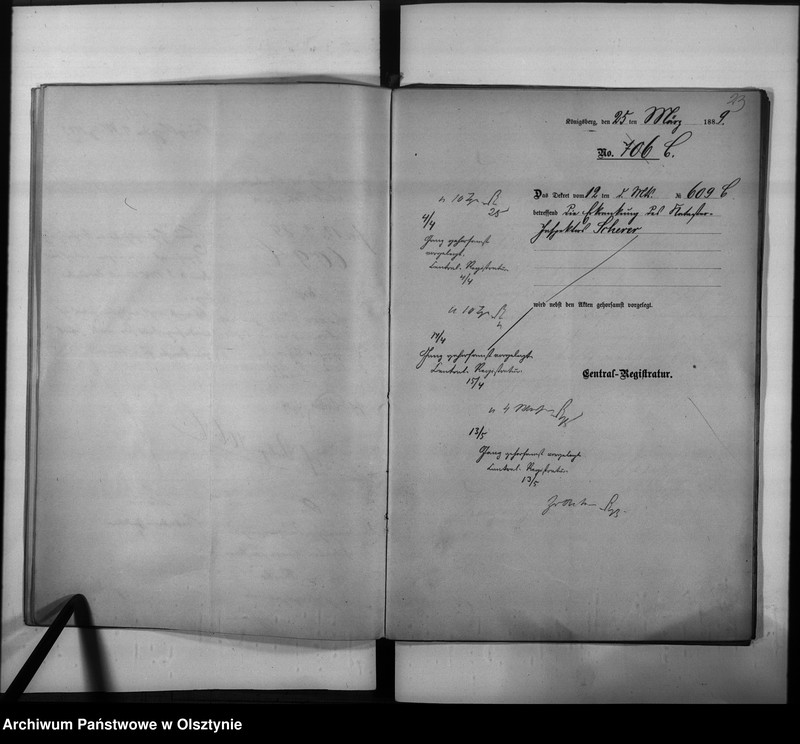 23
Königsberg, den 25 ten März 1889.
No. 706 C.
Das Dekret vom 12 ten d. Mts. № 609 C
betreffend die Erkrankung des Kataster-
Inspektors Scherer
wird nebst den Akten gehorsamst vorgelegt.
Central-Registratur.
n. 10 Tgn
25
4/4
Ganz gehorsamst
vorgelegt.
Central-Registratur
4/4
n. 10 Tgn
14/4
Ganz gehorsamst vorgelegt.
Central-Registratur.
15/4
n. 4
13/5
Ganz gehorsamst vorgelegt.
Central-Registratur.
13/5
Archiwum Państwowe w Olsztynie